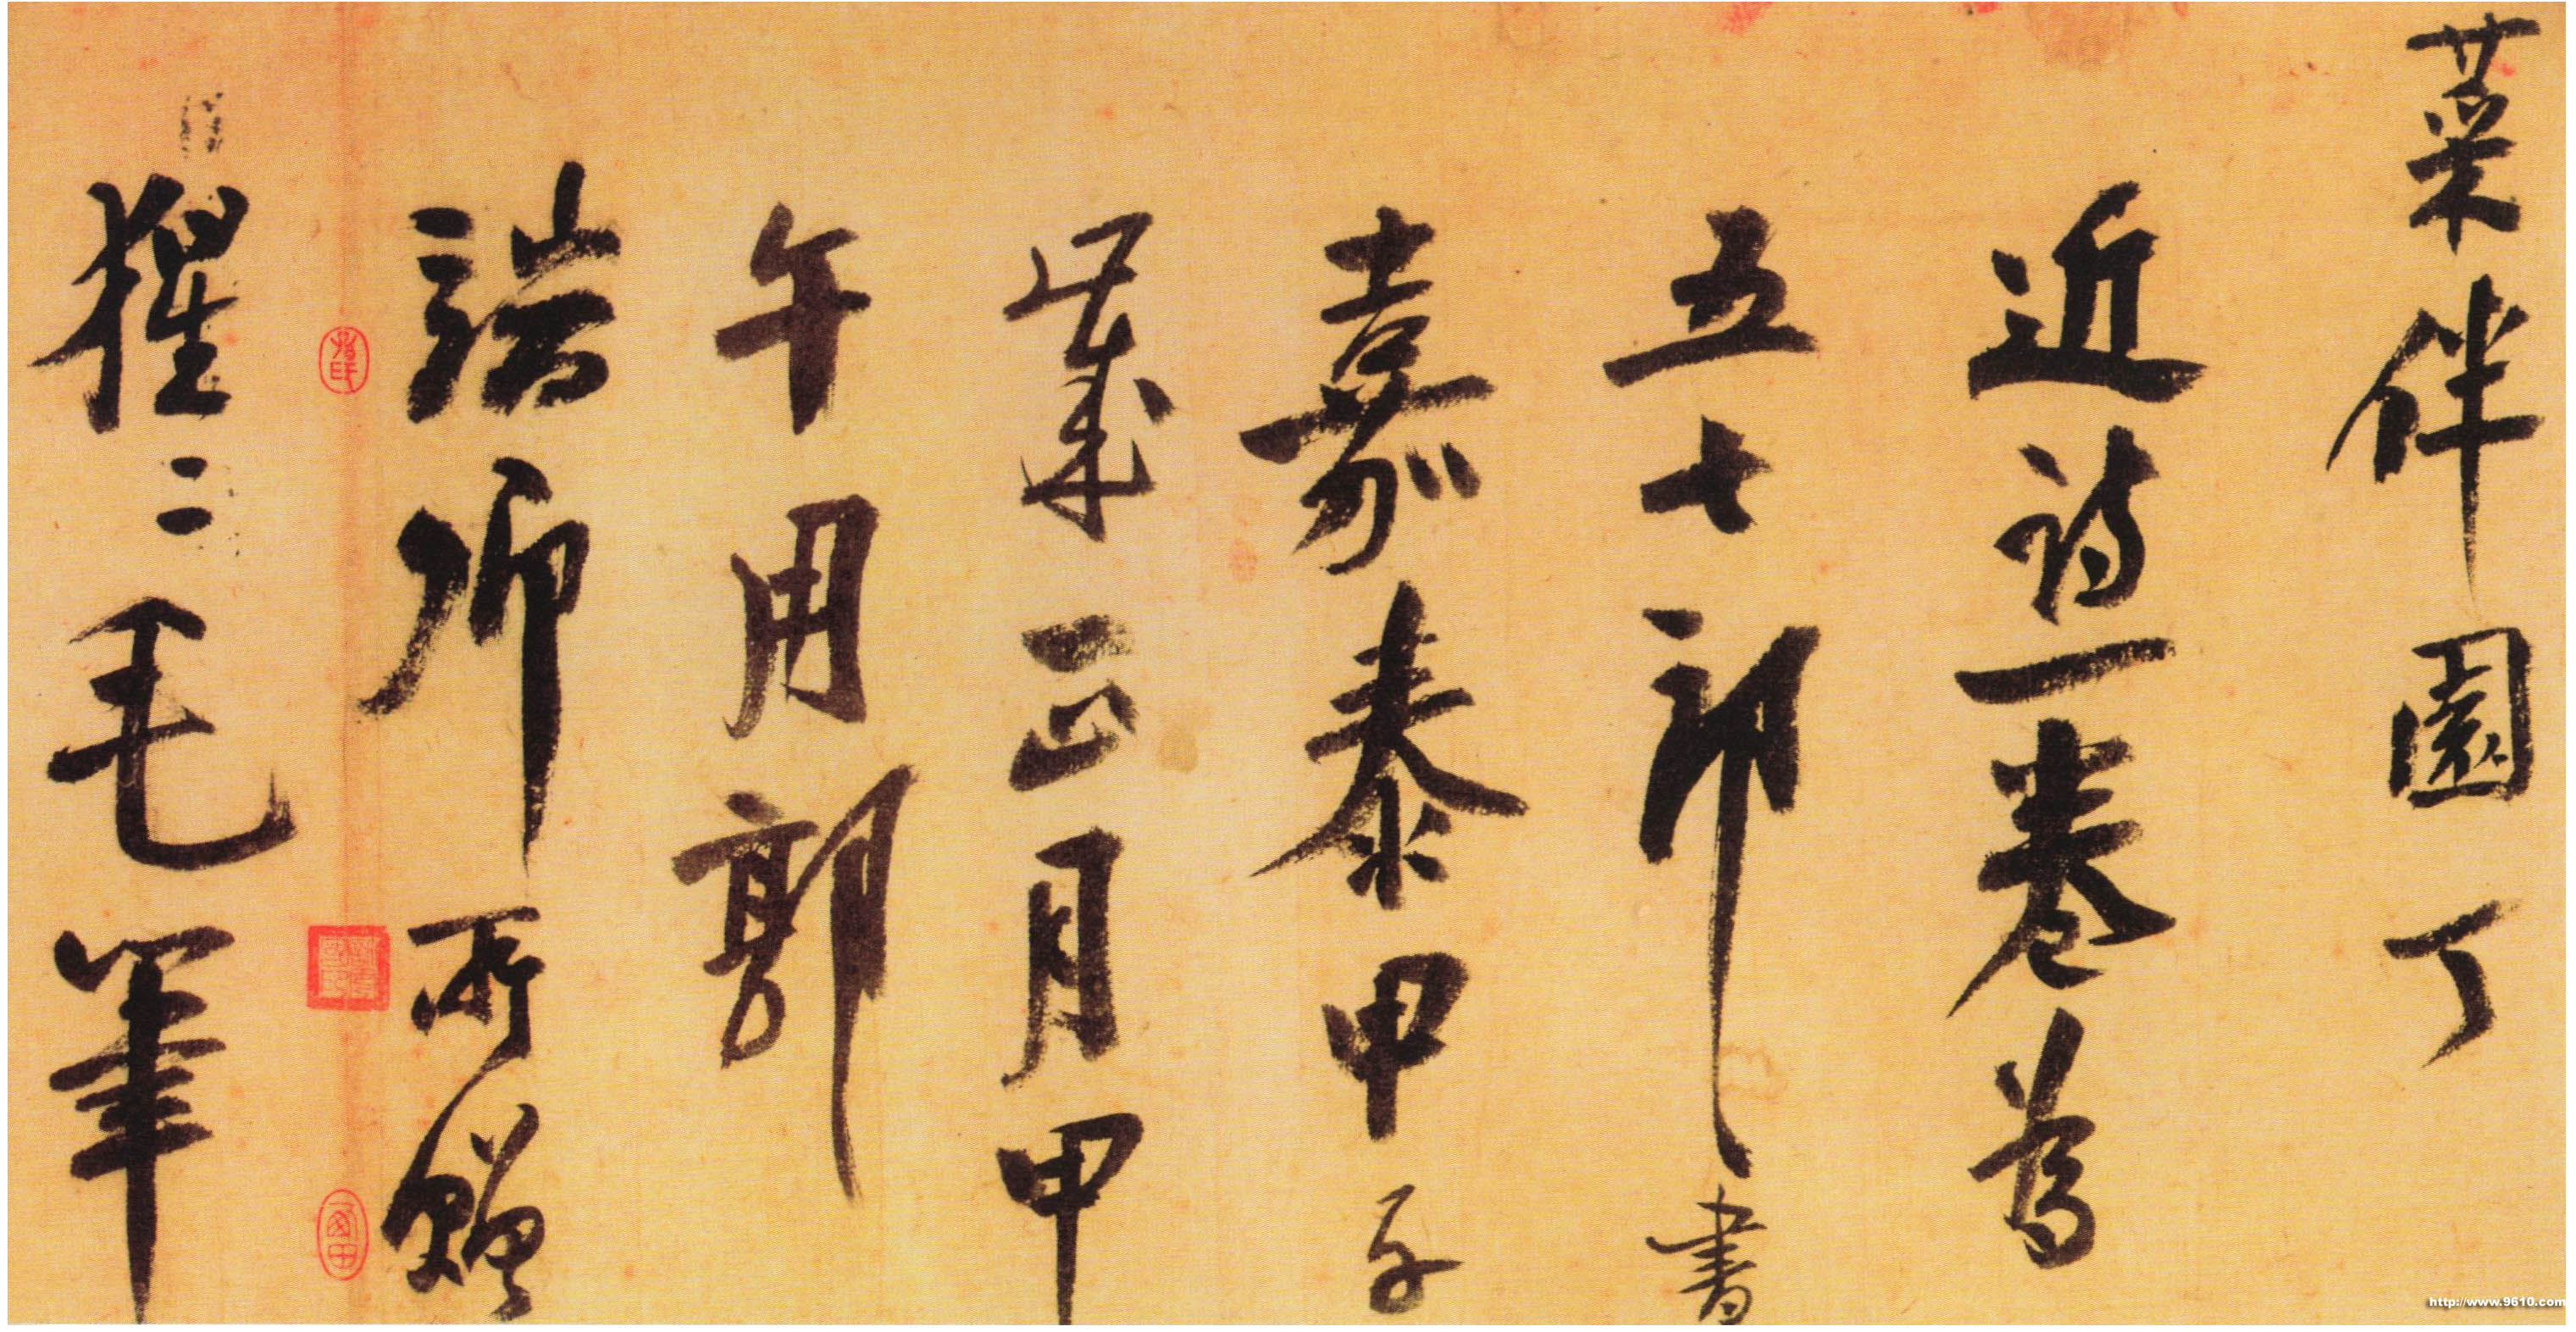 菜伴園丁
近詩一卷為
五七郎書
嘉泰甲子
歲正月甲
午用郭
端卿所贈
猩〻毛筆
http://www.9610.com